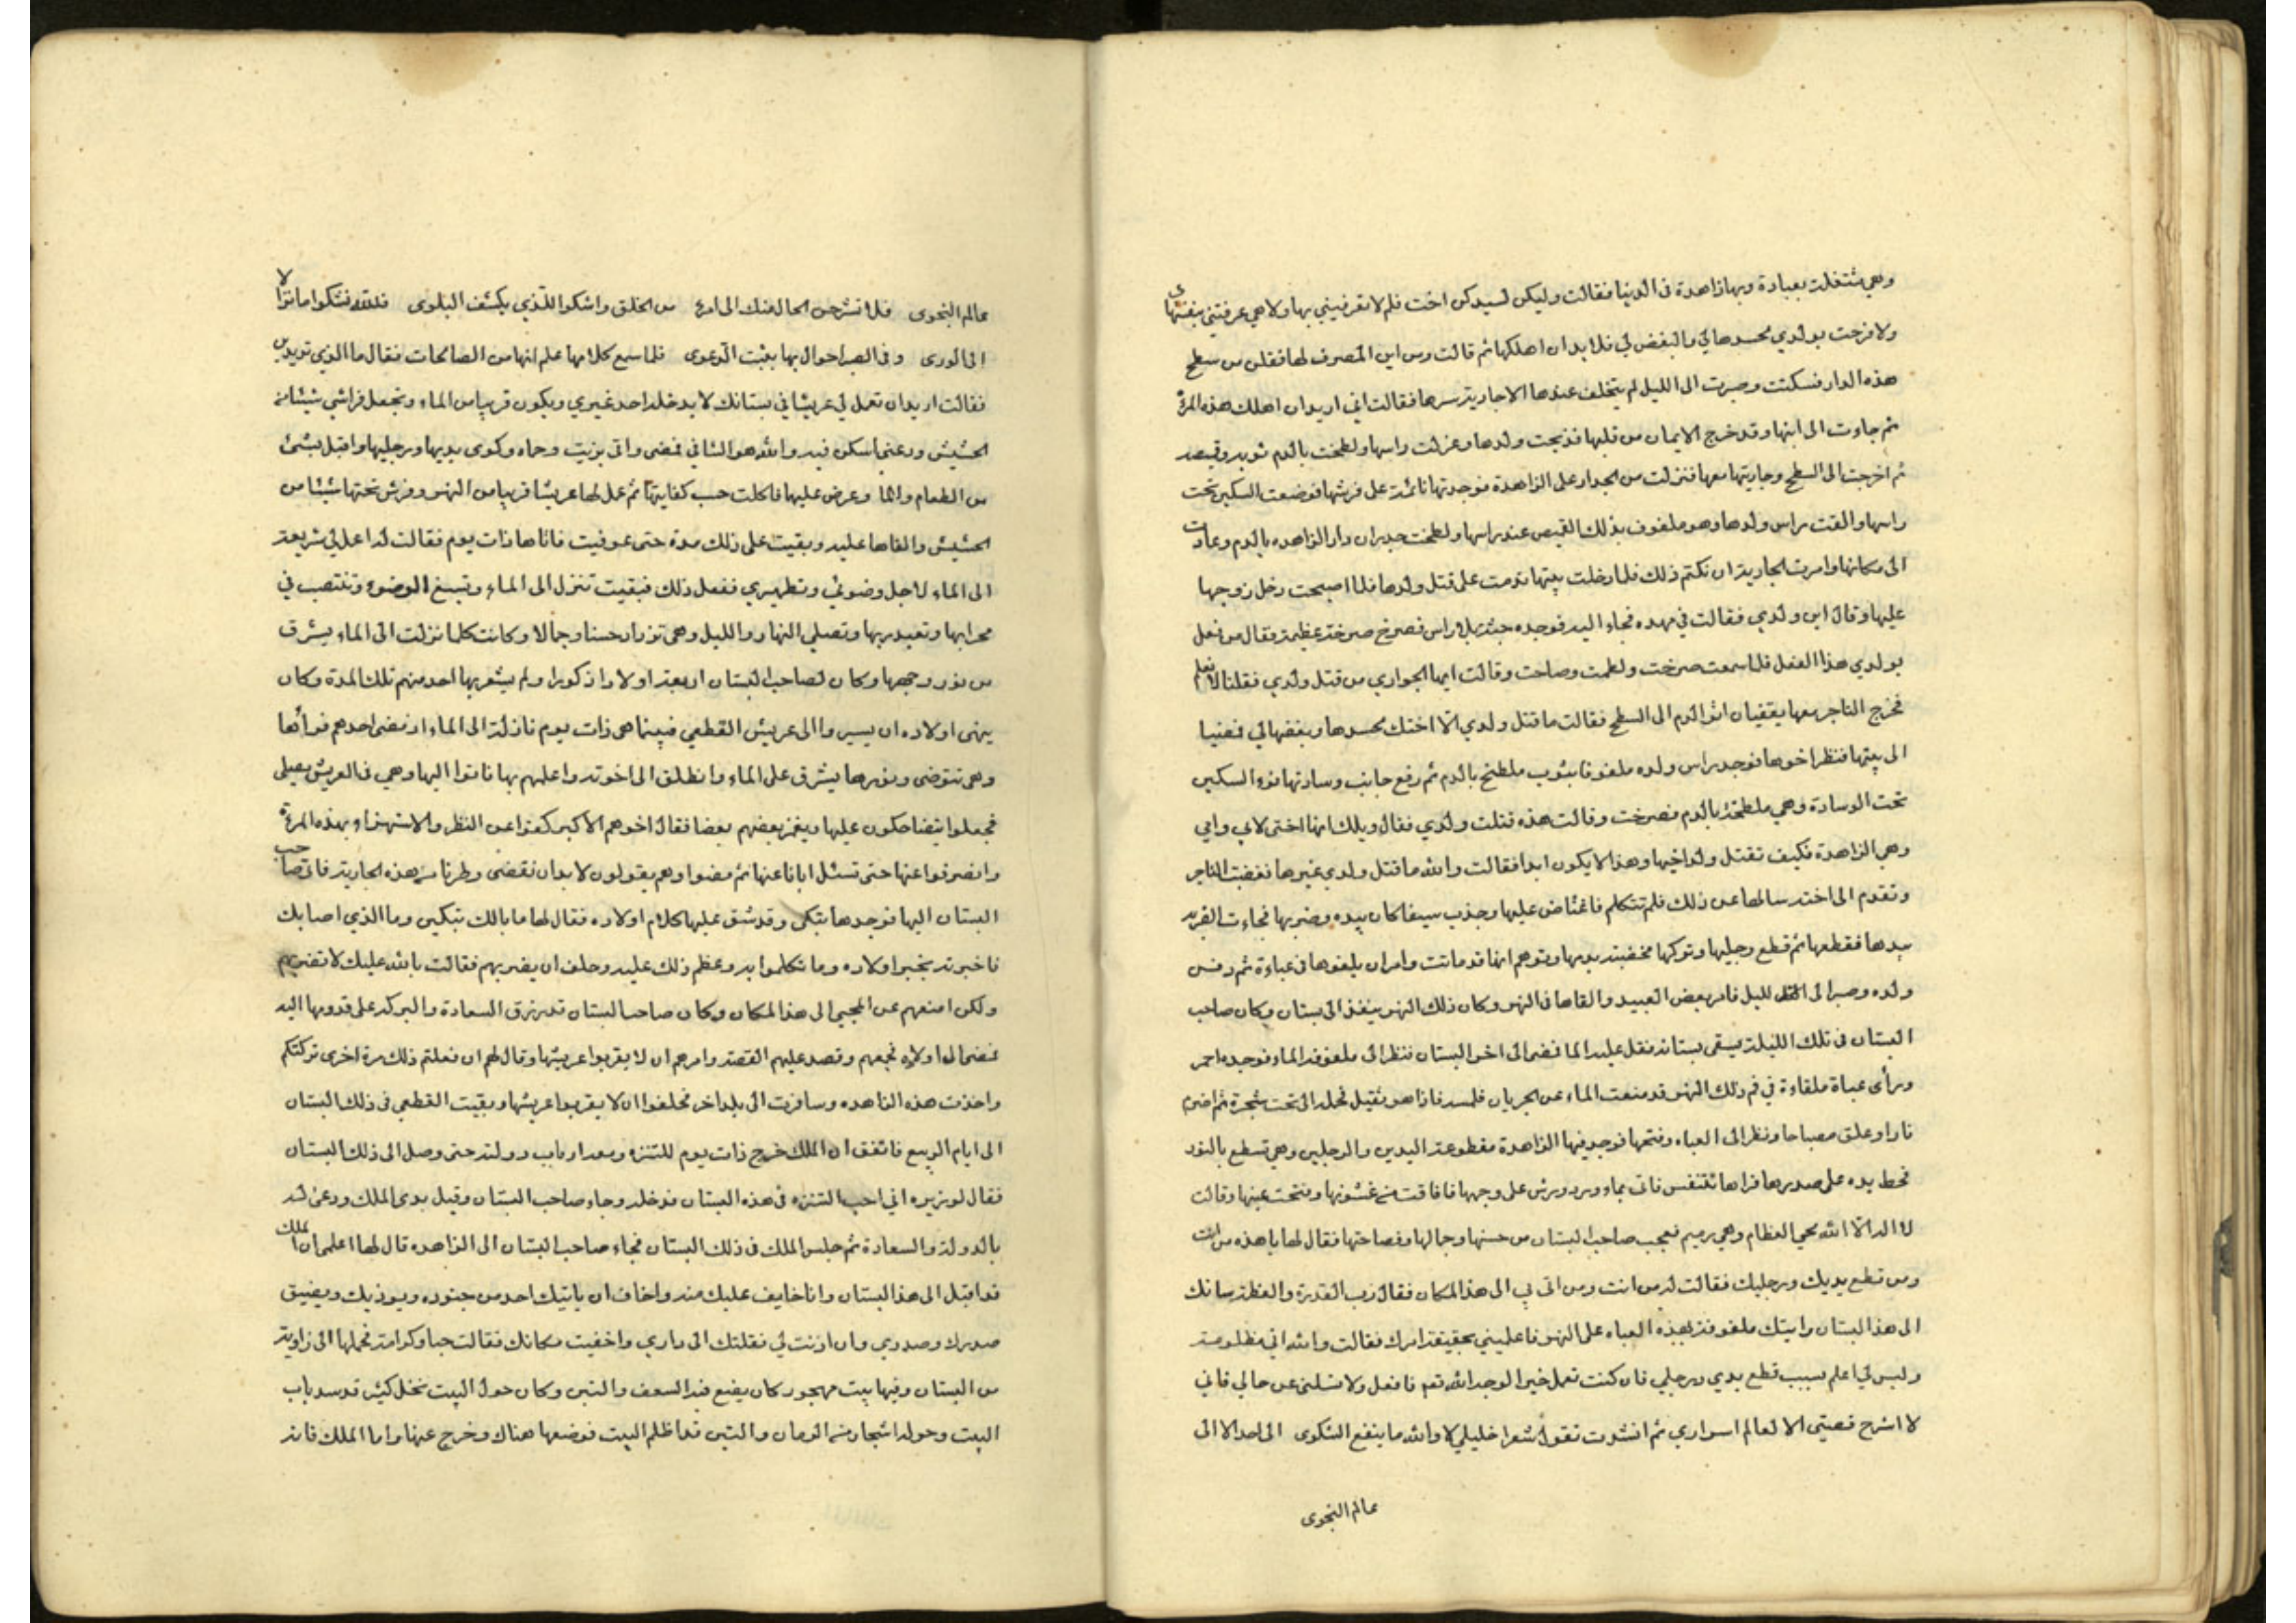 وهي مشتغلة بعبادة ربها زاهدة في الدنيا فقالت وليكن لسيدكن اخت فلم لا تعرفيني بها ولا هي عرفتني بنفسها
ولا فرحت بولدي محسدها لي والبغض لي فلا بد ان اهلكها ثم قالت ومن اين المصرف لها فقلن من سطح
هذه الدار فسكتت وصبرت الى الليل لم يتخلف عندها الا جارية سرها فقالت اني اريد ان اهلك هذه المرة
ثم جاءت الى ابنها وقد خرج الايمان من قلبها فذبحت ولدها وعزلت راسها ولطخت بالدم ثوبه وقميصه
ثم اخرجت الى السطح وجاريتها معها فنزلت من الجدار على الزاهدة فوجدتها نائمة على فرشها فوضعت السكين تحت
راسها والقت راس ولدها وهو ملفوف بذلك القميص عند راسها ولطخت جدران دار الزاهده بالدم وعادت
الى مكانها وامرت الجارية ان تكتم ذلك فلما دخلت بيتها ندمت على قتل ولدها فلما اصبحت دخل زوجها
عليها وقال اين ولدي فقالت في مهده فجاء اليه فوجده جثة بلا راس فصرخ صرخة عظيمة فقال من فعل
بولدي هذا الفعل فلما سمعت صرخت ولطمت وصاحت وقالت ايها الجواري من قتل ولدي فقلنا لا نعلم
فخرج التاجر معها يقفيان اثر الدم الى السطح فقالت ما قتل ولدي الا اختك محسدها وبغضها لي فمضيا
الى بيتها فنظر اخوها فوجد راس ولده ملفوفا بثوب ملطخ بالدم ثم رفع جانب وسادتها فرء السكين
تحت الوسادة وهي ملطخة بالدم فصرخت وقالت هذه قتلت ولدي فقال ويلك انها اختي لابي وامي
وهي الزاهدة فكيف تقتل ولد اخيها وهذا لا يكون ابدا فقالت والله ما قتل ولدي غيرها فغضب التاجر
وتقدم الى اخته سالها عن ذلك فلم تتكلم فاغتاض عليها وجذب سيفا كان بيده وضربها فجاءت الضربه
بيدها فقطعها ثم قطع رجليها وتركها مخضبة بدمها وتوهم انها قد ماتت وامر ان يلفوها في عباءة ثم دفن
ولده وصبر الى الليل فامر بعض العبيد والقاها في النهر وكان ذلك النهر ينفذ الى بستان وكان صاحب
البستان في تلك الليلة يسقى بستانه فقل عليه الما فمضى الى اخر البستان فنظر الى ملفوفه الماء فوجده احمر
ورأى عباة ملقاءة في فم ذلك النهر قد منعت الماء عن الجريان فلمسه فاذا هو ثقيل فحمله الى تحت شجرة ثم اضرم
نارا وعلق مصباحا ونظر الى العباه وفتحها فوجد فيها الزاهدة مقطوعة اليدين والرجلين وهي تسطع بالنور
فحط يده على صدرها فراها تتنفس فاتى بماء ورد ورش على وجهها فافاقت من غشوتها وفتحت عينها وقالت
لا اله الا الله يحي العظام وهي رميم فعجب صاحب البستان من حسنها وجمالها وفصاحتها فقال لها يا هذه من انت
ومن قطع يديك ورجليك فقالت له من انت ومن اتى بي الى هذا المكان فقال رب القدرة والعظمة ساتك
الى هذا البستان رايتك ملفوفة بهذه العباه على النهر فاعلميني بحقيقة امرك فقالت والله اني مظلومة
وليس لي اعلم بسبب قطع يدي ورجلي فان كنت تعمل خيرا لوجه الله نعم فافعل ولا تسلني عن حالي فاني
لا اشرح قصيتي الا لعالم اسراري ثم انشدت تقول شعرا خليلي لا والله ما ينفع الشكوى الى احد الا الى
عالم النجوى
عالم النجوى فلا تشرحن الحال منك الى امرء من الخلق واشكوا للذي يكشف البلوى فلله فشكوا ما نزلا
الى الورى وفي الصبر احوال بها يثبت الدعوى فلما سمع كلامها علم انها من الصالحات فقال ما الذي تريدين
فقالت اريد ان تعمل لي عريشا في بستانك لا يدخله احد غيري ويكون قريبا من الماء وتجعل فراشي شيئا من
الحشيش ودعني اسكن فيه والله هو الشافي فمضى واتى بزيت وحماه وكوى يديها ورجليها واقبل بشئ
من الطعام والما وعرض عليها فاكلت حسب كفايتها ثم عمل لها عريشا قريبا من النهر وفرش تحتها شيئا من
الحشيش والقاها عليه وبقيت على ذلك مدة حتى عوفيت فاتاها ذات يوم فقالت له اعمل لي شريعة
الى الماء لاجل وضوئي وتطهيري ففعل ذلك فبقيت تنزل الى الماء وتسبغ الوضوء وتنتصب في
محرابها وتعبد ربها وتصلي النهار والليل وهي تزداد حسنا وجمالا وكانت كلما نزلت الى الماء يشرق
من نور وجهها وكان لصاحب البستان اربعة اولاد ذكورا ولم يشعر بها احد منهم تلك المدة وكان
ينهى اولاده ان يسيروا الى عريش القطعي فبينما هي ذات يوم نازلة الى الماء اذ مضى احدهم فرأها
وهي تتوضى ونورها يشرق على الماء وانطلق الى اخوته واعلمهم بها فاتوا اليها وهي في العريش يصلي
فجعلوا يتضاحكون عليها ويغمز بعضهم بعضا فقال اخوهم الاكبر كفوا عن النظر والاستهزاء بهذه المرءة
وانصرفوا عنها حتى تسئل ابانا عنها ثم مضوا وهم يقولون لا بد ان نقضى وطرنا من هذه الجارية فاتى صاحب
البستان اليها فوجدها تبكى وقد شق عليها كلام اولاده فقال لها ما بالك تبكين وما الذي اصابك
فاخبرته بخبر اولاده وما تكلموا به وعظم ذلك عليه وحلف ان يضربهم فقالت بالله عليك لا تضربهم
ولكن امنعهم عن المجيئ الى هذا المكان وكان صاحب البستان قد رزق السعادة والبركه على قدومها اليه
فمضى الى اولاده فجمعهم وقصد عليهم القصة وامرهم ان لا يقربوا عريشها وقال لهم ان فعلتم ذلك مرة اخرى تركتكم
واخذت هذه الزاهده وسافرت الى بلد اخر فحلفوا ان لا يقربوا عريشها وبقيت القطعي في ذلك البستان
الى ايام الربيع فاتفق ان الملك خرج ذات يوم للتنزه ومعه ارباب دولته حتى وصل الى ذلك البستان
فقال لوزيره اني احب التنزه في هذه البستان فدخله وجاء صاحب البستان وقبل يدى الملك ودعى له
بالدولة والسعادة ثم جلس الملك في ذلك البستان فجاء صاحب البستان الى الزاهده قال لها اعلمي ان الملك
قد اقبل الى هذا البستان وانا خايف عليك منه واخاف ان ياتيك احد من جنوده ويوذيك ويضيق
صدرك وصدري وان اذنت لي نقلتك الى داري واخفيت مكانك فقالت حبا وكرامة فحملها الى زاوية
من البستان وفيها بيت مهجور كان يضع فيه السعف والتبن وكان حول البيت نخل كثير قد سد باب
البيت وحوله اشجار من الرمان والتين قد اظلم البيت فوضعها هناك وخرج عنها واما الملك فانه